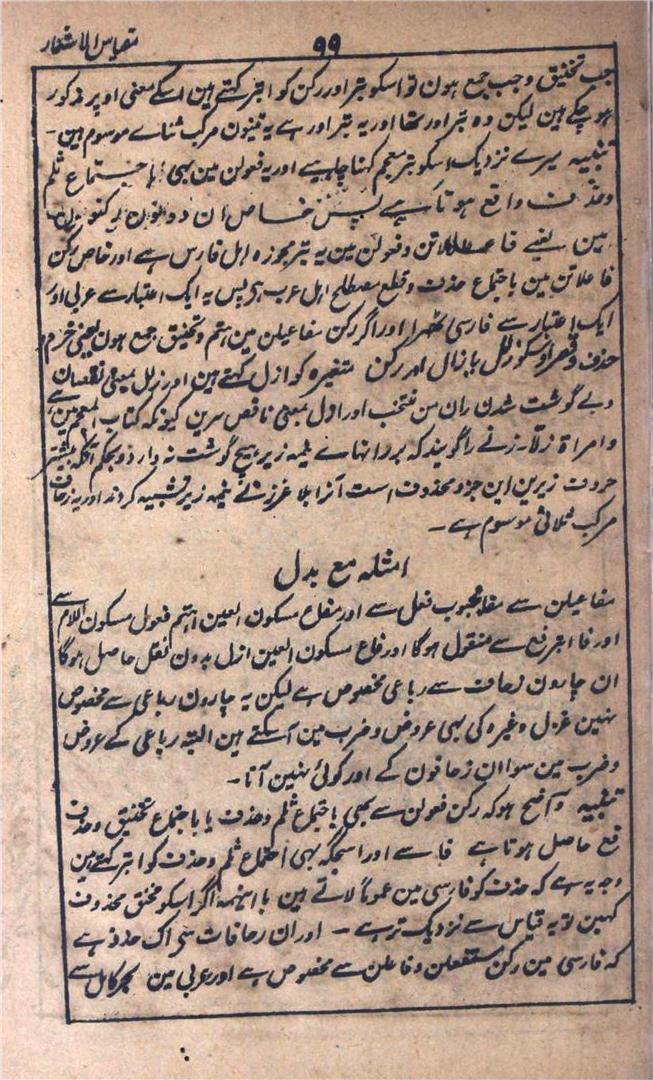 مقیاس الاشعار
۹۹
جب تخنیق و جب جمع ہون تو اسکو بتر اور رکن کو ابتر کہتے ہین اسکے معنی اوپر مذکور
ہو چکے ہین لیکن وہ بتر اور تھا اور یہ بتر اور ہے یہ تینون مرکب ثنائے موسوم ہین۔
تنبیہ میرے نزدیک اسکو بتر معجم کہنا چاہیے اور یہ فعولن مین بھی باجتماع ثلم
وحذف واقع ہوتا ہے پس خاص ان دونون رکنون
مین یعنے فاعلاتن وفعولن مین یہ بتر مجوزہ اہل فارس ہے اور خاص رکن
فاعلاتن مین باجتماع حذف وقطع مصطلح اہل عرب ہی پس یہ ایک اعتبار سے عربی اور
ایک اعتبار سے فارسی ٹھہرا اور اگر رکن مفاعیلن مین ہتم وتخنیق جمع ہون یعنی خرم
حذف وقصر اوسکو زلل بازال اور رکن متغیرہ کو ازل کہتے ہین اور زلل بمعنی نقصان ہے
و بے گوشت شدن ران من منتخب اور ازل بمعنی ناقص سرین کیونکہ کتاب المعجم مین
وامراۃ زلاء زنے را گویند کہ بر رانہاے نیمہ زیر ہیچ گوشت ندارد و بحکم آنکہ بیشتر
حروف زیرین این جزو محذوف است آنرا بلاغر زنے نیمہ زیر تشبیہ کردند اور یہ زحاف
مرکب ثلاثی موسوم ہے۔
امثلہ مع بدل
مفاعیلن سے مفا مجبوب فعل سے اور مفاع مسکون العین اہتم فعول مسکون اللام سے
اور فا ابتر فع سے منقول ہوگا اور فاع مسکون العین ازل بدون نقل حاصل ہوگا
ان چارون زحاف سے رباعی مخصوص ہے لیکن یہ چارون رباعی سے مخصوص
نہین غزل وغیرہ کی بھی عروض وضرب مین آسکتے ہین البتہ رباعی کے عروض
وضرب مین سوا ان زحافون کے اور کوئی نہین آتا۔
تنبیہ واضح ہو کہ رکن فعولن سے بھی باجتماع ثلم وحذف یا باجتماع تخنیق وحذف
فع حاصل ہوتا ہے فا سے اور اسجگہ بھی اجتماع ثلم وحذف کو ابتر کہتے ہین
وجہ یہ ہے کہ حذف کو فارسی مین عموماً لاتے ہین با اینہمہ اگر اسکو مخنق محذوف
کہین تو یہ قیاس سے نزدیک تر ہے۔ اور ان زحافات سے اک حذذ ہے
کہ فارسی مین رکن مستفعلن وفاعلن سے مخصوص ہے اور عربی مین بحر کامل سے